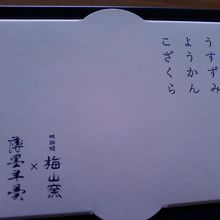 うすずみ
ようかん
こざくら
梅山窯
×
薄墨羊羹